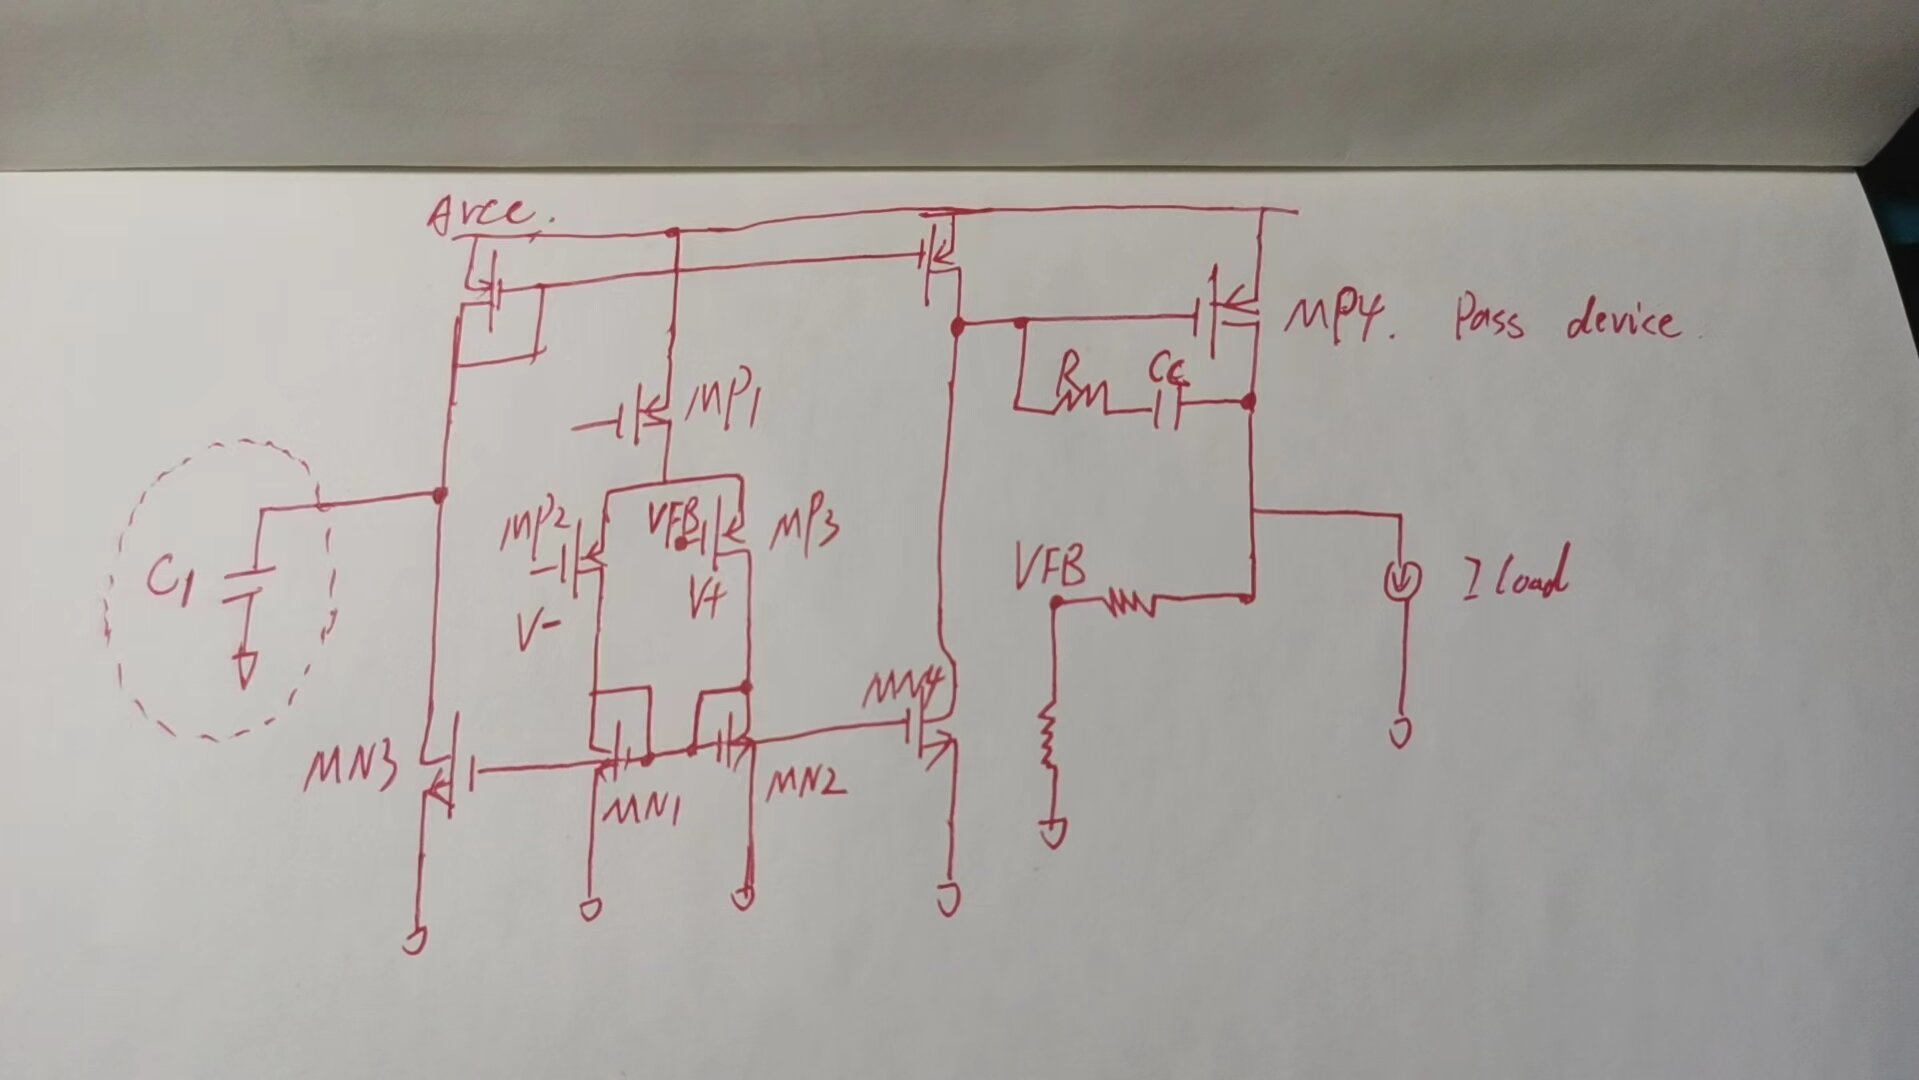 Avcc.
MP4. Pass device.
R
Cc
MP1
MP2
VFB
MP3
V-
V+
C1
VFB
I load
MN4
MN3
MN1
MN2